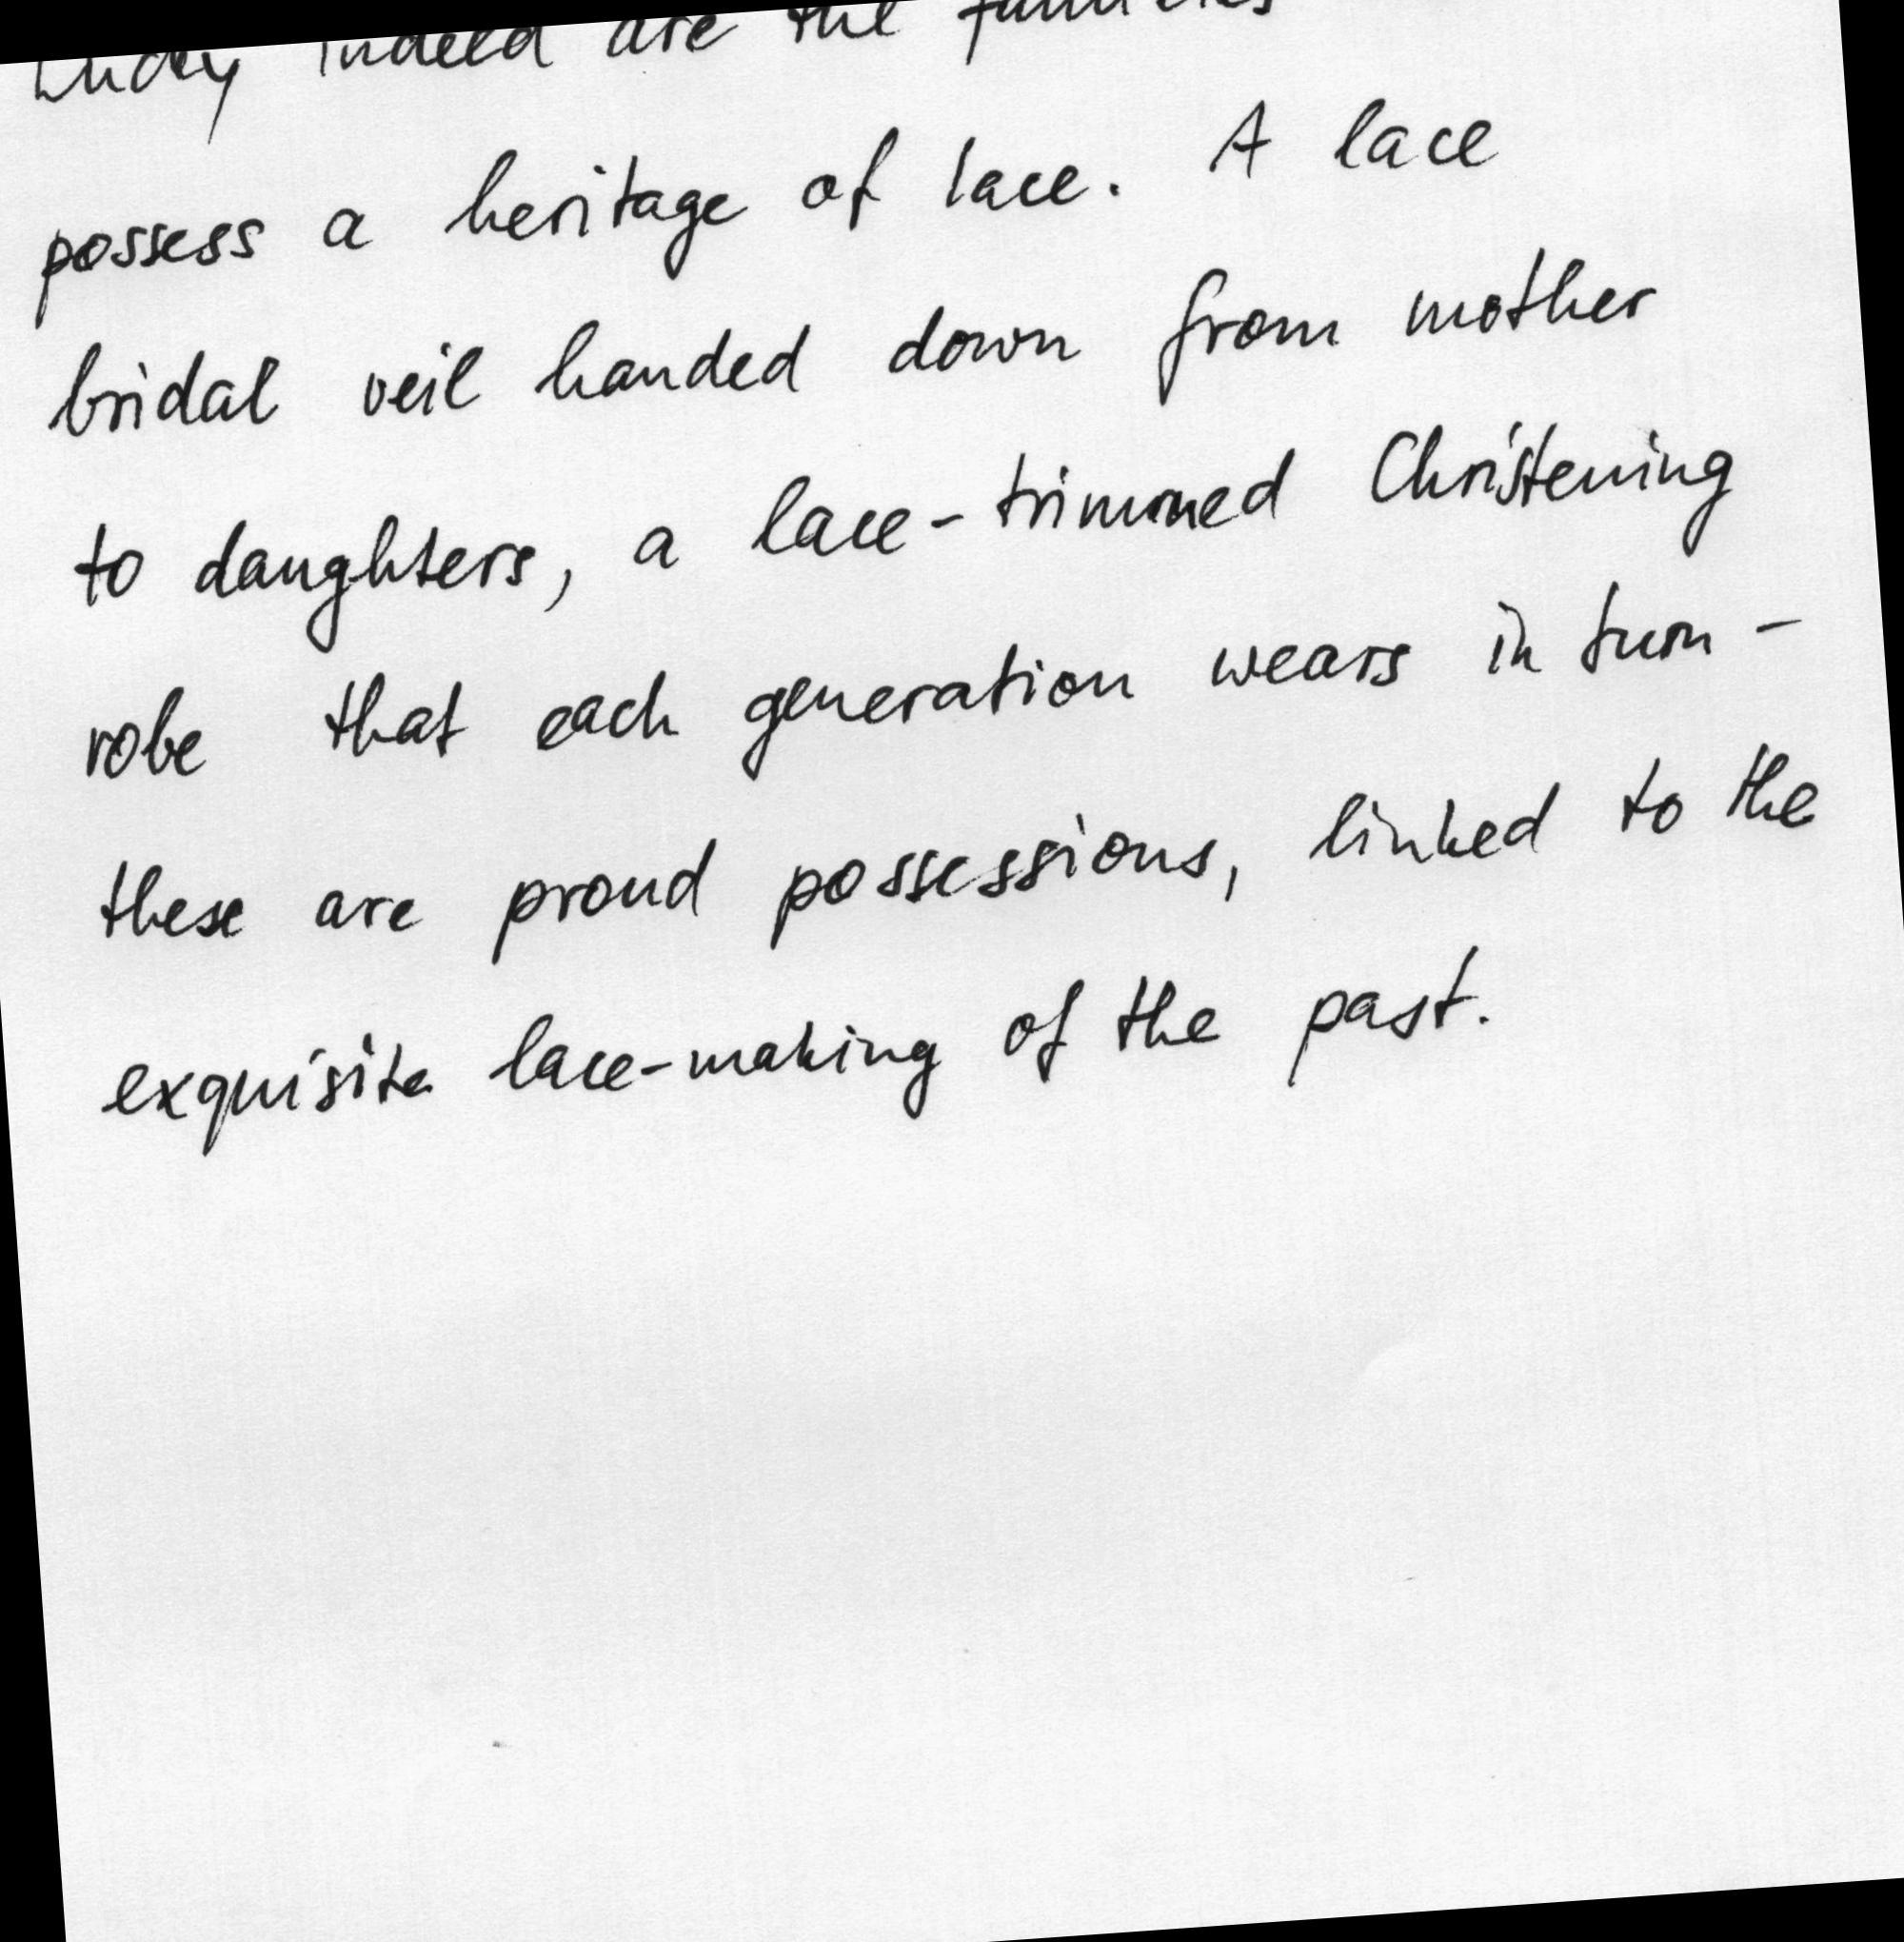 Lucky indeed are the families
possess a heritage of lace. A lace
bridal veil handed down from mother
to daughters, a lace-trimmed Christening
robe that each generation wears in turn -
these are proud possessions, linked to the
exquisite lace-making of the past.